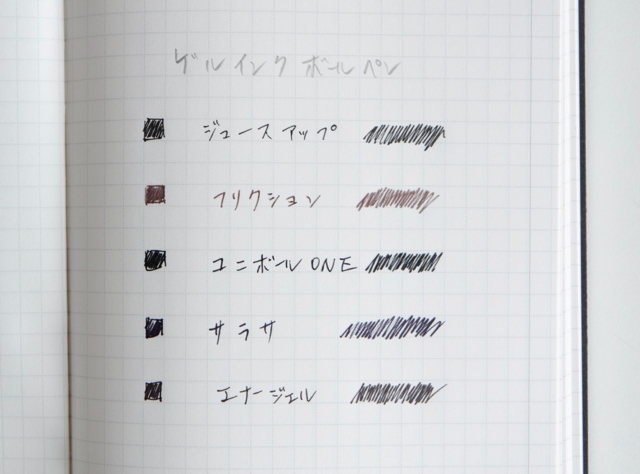 ゲルインクボールペン
ジュースアップ
フリクション
ユニボールONE
サラサ
エナージェル